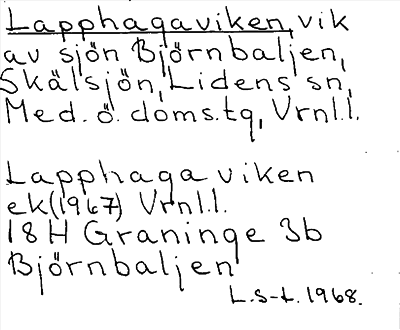 Lapphagaviken, vik
av sjön Björnbaljen,
Skälsjön, Lidens sn,
Med. ö. doms.tg, Vrnl.l.
Lapphaga viken
ek (1967) Vrnl.l.
18H Graninge 3b
Björnbaljen
L.S-t. 1968.